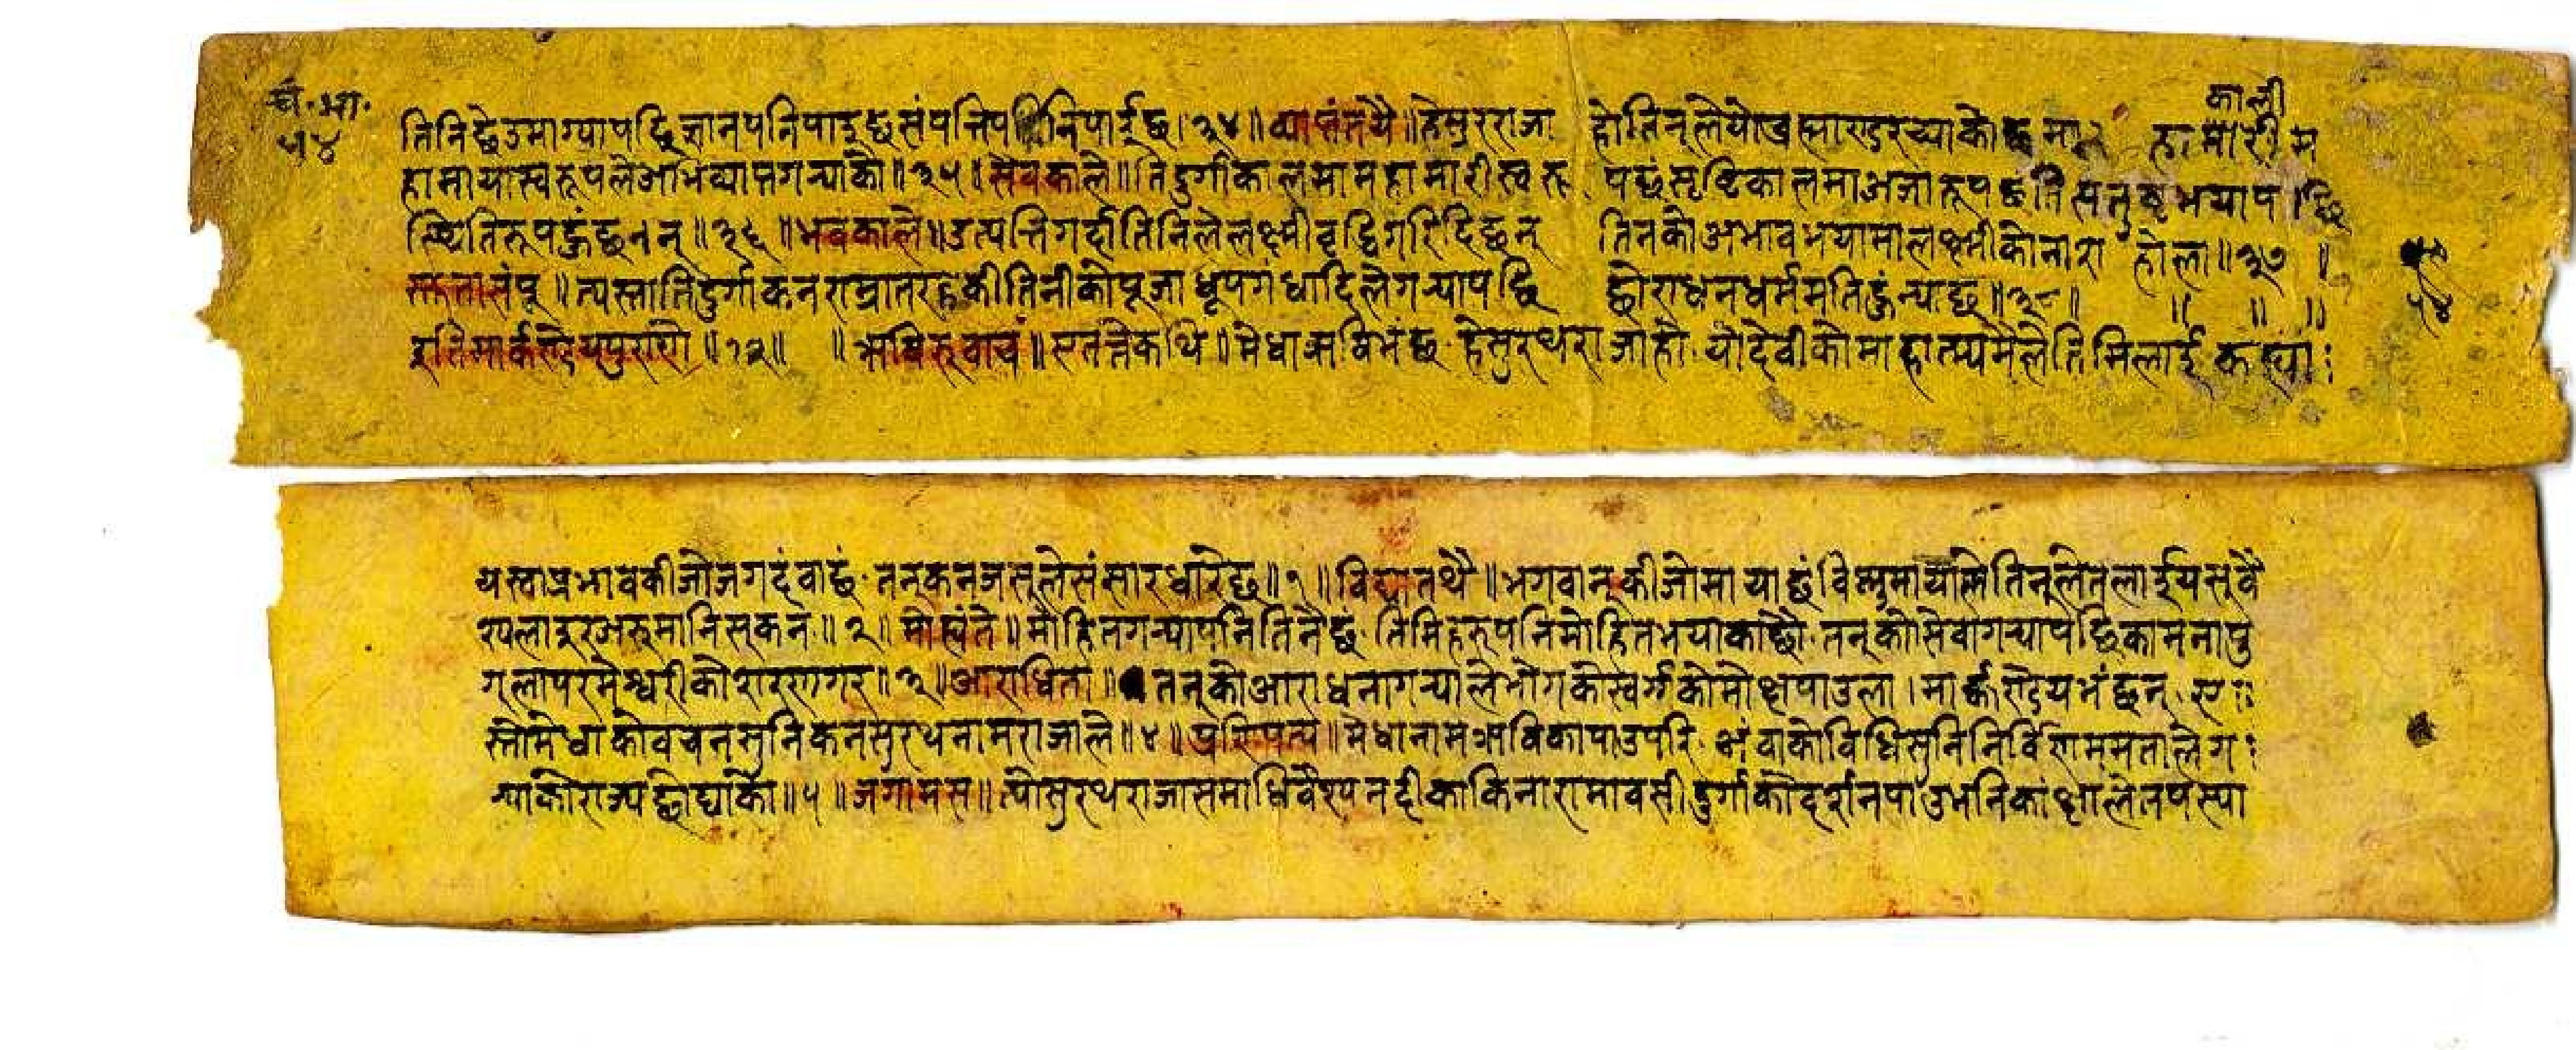 चं.भा.
५४
काली
तिनिछेउमाग्यापछि ज्ञानपनिपाइछ संपत्तिपनिपाईछ।३४॥व्याप्तंतयै॥हेसुरराजा होतिनूलेयोब्रह्माण्डरच्याकोछमा हामारीम
हामायास्वरूपलेअभिव्याप्तगर्‍याको॥३५॥सैवकाले॥तिदुर्गाकालमामहामारीस्वरूपछंसृष्टिकालमाअजारूपछति
स्थितिरूपहुंछनन्॥३६॥भवकाले॥उत्पत्तिगर्दातिनिलेलक्ष्मीवृद्धिगरिदिछन् तिनकोअभावभयामालक्ष्मीकोनाश होला॥३७॥
स्तुतासंपू॥त्यस्तातिदुर्गाकनराम्रातरहकीतिनीकोपूजाधूपगंधादिलेगर्‍यापछि छोराधनधर्ममतिहुंन्याछ॥३८॥
इतिमार्कण्डेयपुराणे॥१२॥ ॥ऋषिरुवाच॥एतत्तेकथि॥मेधाऋषिभंछ हेसुरथराजाहो यीदेवीकोमाहात्म्यमैलेतिमिलाई कह्या
५४
यस्ताप्रभावकीजोजगदंवाछं तनकनजसूलेसंसारधारेछ॥१॥विद्यातथै॥भगवान्कीजोमायाछंविष्णुमायालेतिनूलेतलाईयसवै
श्यलाइरअरुमानिसकन॥२॥मोह्यंते॥मोहितगर्‍यापनितिनैछं तिमिहरुपनिमोहितभयाकाछौ तनकोसेवागर्‍यापछिकामनापु
ग्लापरमेश्वरीकोशरणगर॥३॥आराधिता॥तनकोआराधनागर्‍यालेभोगकोस्वर्गकोमोक्षपाउला।मार्कण्डेयभंछन् ए
स्तोमेधाकोवचनसुनिकनसुरथनामराजाले॥४॥प्रणिपत्य॥मेधानामऋषिकापाउपरि अंवाकोविधिसुनिनिर्विण्णममतालेग
र्‍याकोराज्यछोड्याको॥५॥जगामस॥योसुरथराजासमाधिवैश्यनदीकाकिनारामावसीदुर्गाकोदर्शनपाउंभनिकांक्षालेतपस्या